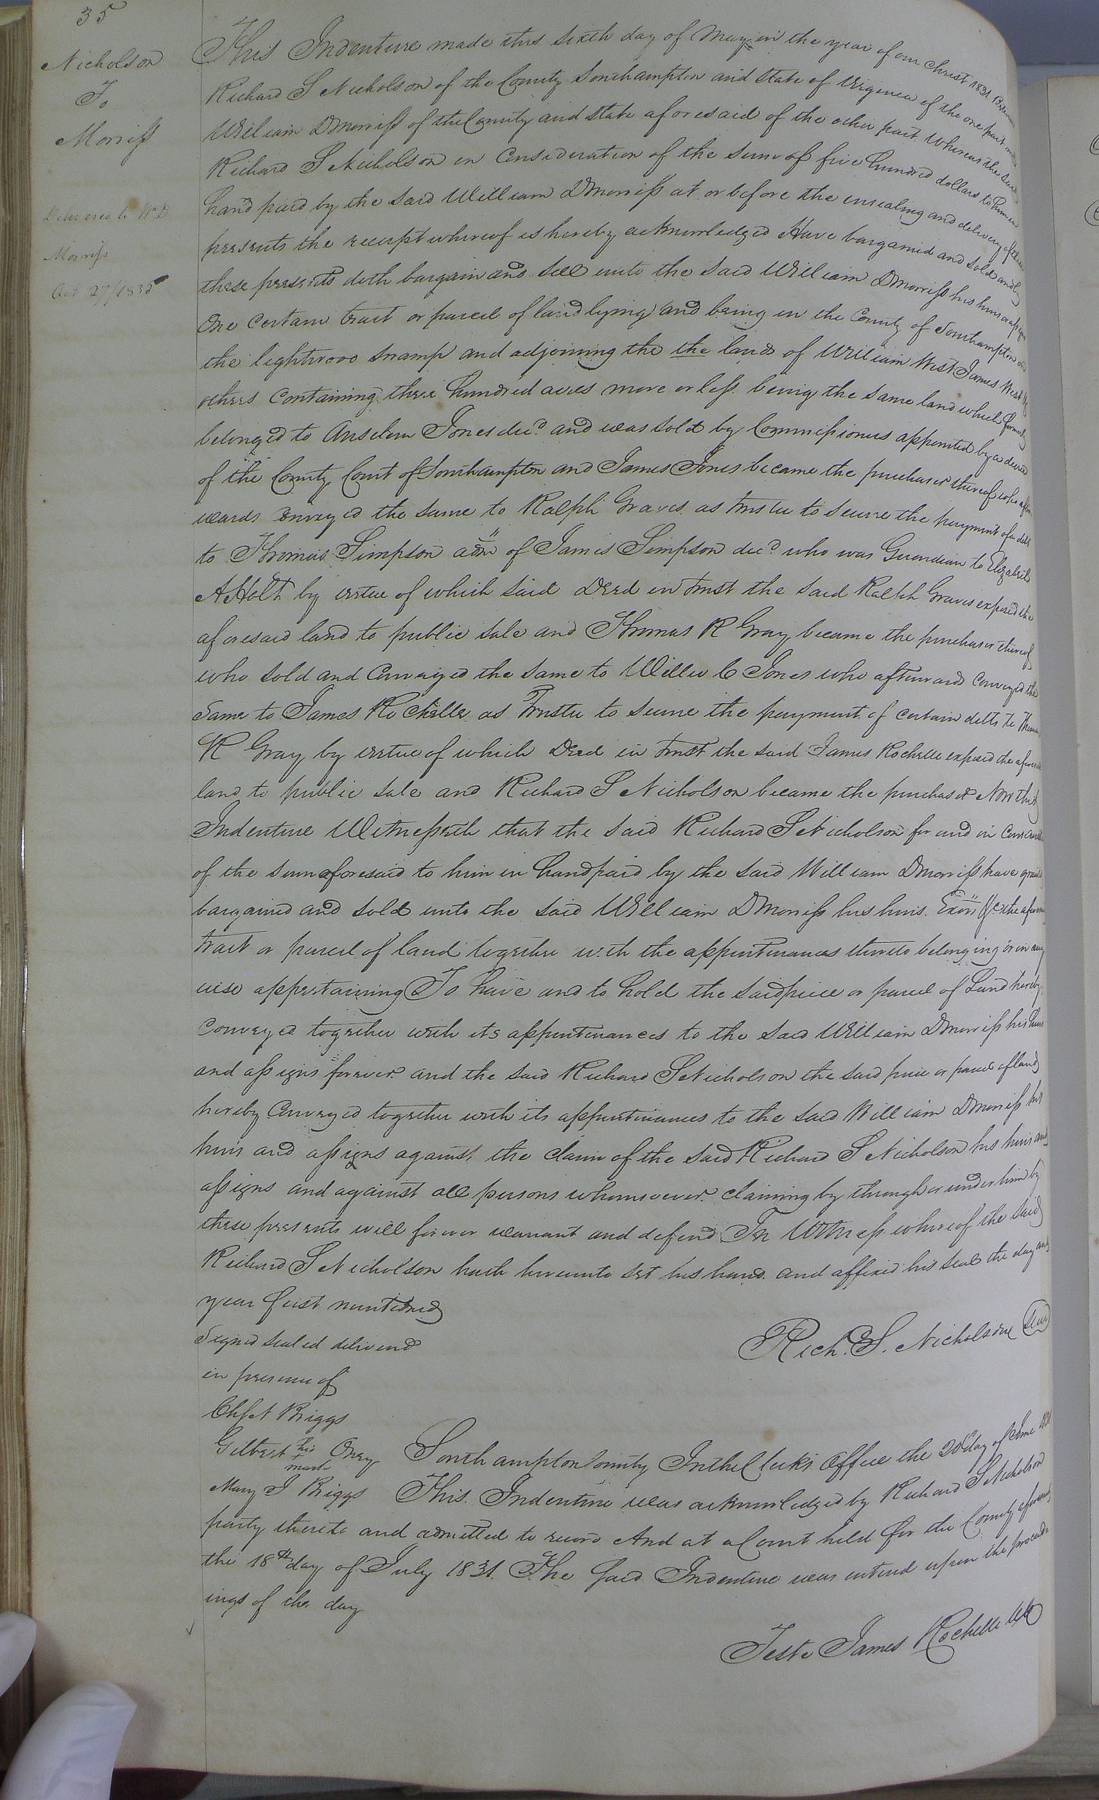 35
Nicholson
To
Morriss
Delivered to Wm D
Morriss
Oct 27/1835
This Indenture made this sixth day of May in the year of our Christ 1831 Between
Richard S Nicholson of the County Southampton and State of Virginia of the one part and
William D Morriss of the County and State aforesaid of the other part Whereas the said
Richard S Nicholson in Consideration of the sum of five hundred dollars to him in
hand paid by the said William D Morriss at or before the ensealing and delivery of these
presents the receipt whereof is hereby acknowledged Have bargained and sold and by
these presents doth bargain and sell unto the said William D Morriss his heirs or assigns
One certain tract or parcel of land lying and being in the County of Southampton on
the lightwood swamp and adjoining the the lands of William West James West
others containing three hundred acres more or less being the same land which formerly
belonged to Anselem Jones decd and was sold by Commissioners appointed by a decree
of the County Court of Southampton and James Jones became the purchaser thereof who after
wards conveyed the same to Ralph Graves as trustee to secure the payment of a debt
to Thomas Simpson adm of James Simpson decd who was Guardian to Elizabeth
A Holt by virtue of which said Deed in trust the said Ralph Graves exposed the
aforesaid land to public sale and Thomas R Gray became the purchaser thereof
who sold and Conveyed the same to Willie C Jones who afterwards conveyed the
same to James Rochelle as Trustee to secure the payment of certain debts to Thomas
R Gray by virtue of which Deed in trust the said James Rochelle exposed the aforesaid
land to public sale and Richard S Nicholson became the purchaser Now this
Indenture Witnesseth that the said Richard S Nicholson for and in Consideration
of the sum aforesaid to him in hand paid by the said William D Morriss have granted
bargained and sold unto the said William D Morriss his heirs Exors &c the aforesaid
tract or parcel of land together with the appurtenances thereto belonging or in any
wise appertaining To have and to hold the said piece or parcel of Land hereby
Conveyed together with its appurtenances to the said William D Morriss his heirs
and assigns forever and the said Richard S Nicholson the said piece or parcel of land
hereby Conveyed together with its appurtenances to the said William D Morriss his
heirs and assigns against the claim of the said Richard S Nicholson his heirs and
assigns and against all persons whomsoever claiming by through or under him by
these presents will forever warrant and defend In Witness whereof the said
Richard S Nicholson hath hereunto set his hand and affixed his seal the day and
year first mentioned
Rich. S. Nicholson Seal
Signed sealed delivered
in presence of
Chs A Briggs
Gilbert his mark Oney
Mary J Briggs
Southampton County In the Clerks Office the 20th day of June 1831
This Indenture was acknowledged by Richard S Nicholson
party thereto and admitted to record And at a Court held for the County aforesaid
the 18th day of July 1831. The said Indenture was entered upon the proceed
ings of the day
Teste James Rochelle Clk